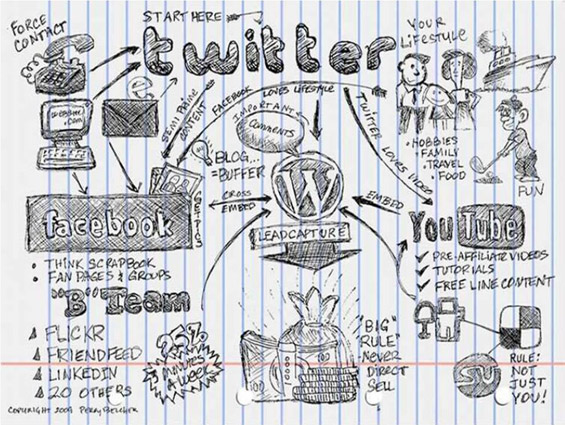 START HERE
FORCE
CONTACT
twitter
YOUR
LIFESTYLE
WEBSITE
.COM
SEMI PRIME
CONTENT
FACEBOOK LOVES LIFESTYLE
IMPORTANT
COMMENTS
TWITTER LOVES VIDEO
• HOBBIES
• FAMILY
• TRAVEL
• FOOD
FUN
BLOG...
=BUFFER
W
CROSS
EMBED
EMBED
facebook
YouTube
LEADCAPTURE
• THINK SCRAPBOOK
• FAN PAGES & GROUPS
PRE-AFFILIATE VIDEOS
TUTORIALS
FREE LINE CONTENT
"B" TEAM
FLICKR
FRIENDFEED
LINKEDIN
20 OTHERS
25%
MINUTES
A WEEK
100
"BIG"
RULE"
NEVER
DIRECT
SELL
SU
RULE:
NOT
JUST
YOU!
COPYRIGHT 2009 PERRY BELCHER